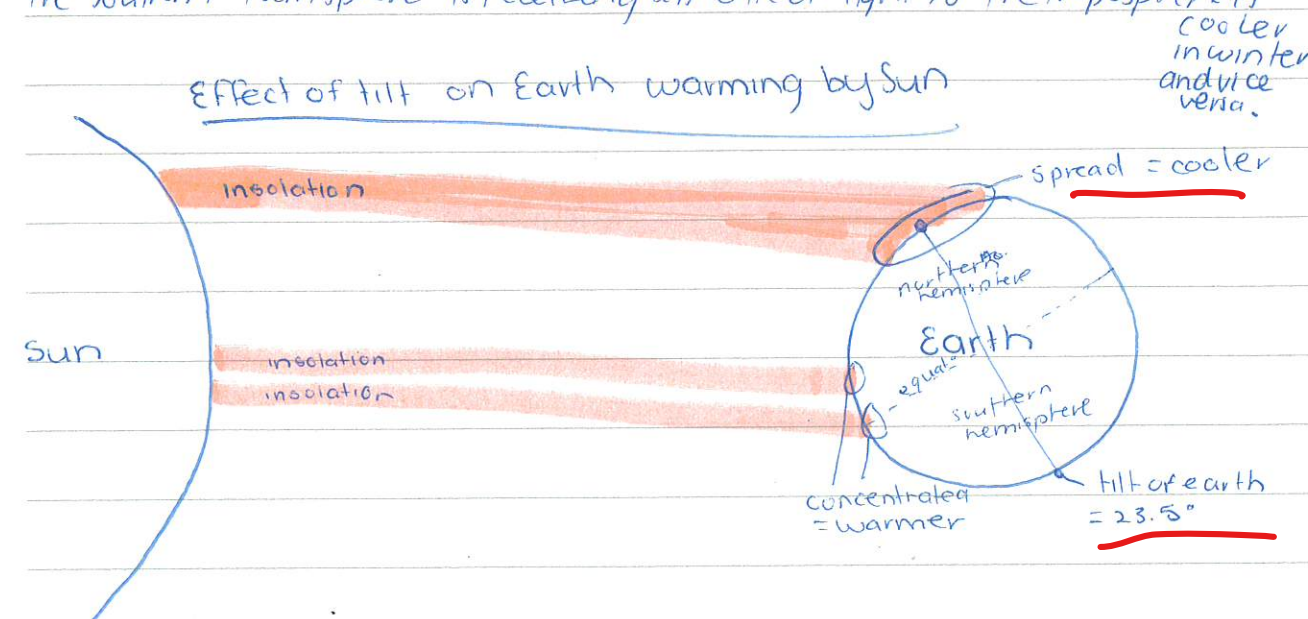 cooler
in winter
and vice
versa.
Effect of tilt on Earth warming by Sun
spread = cooler
insolation
northern
hemisphere
Sun
Earth
insolation
insolation
equat
southern
hemisphere
concentrated
= warmer
tilt of earth
= 23.5°